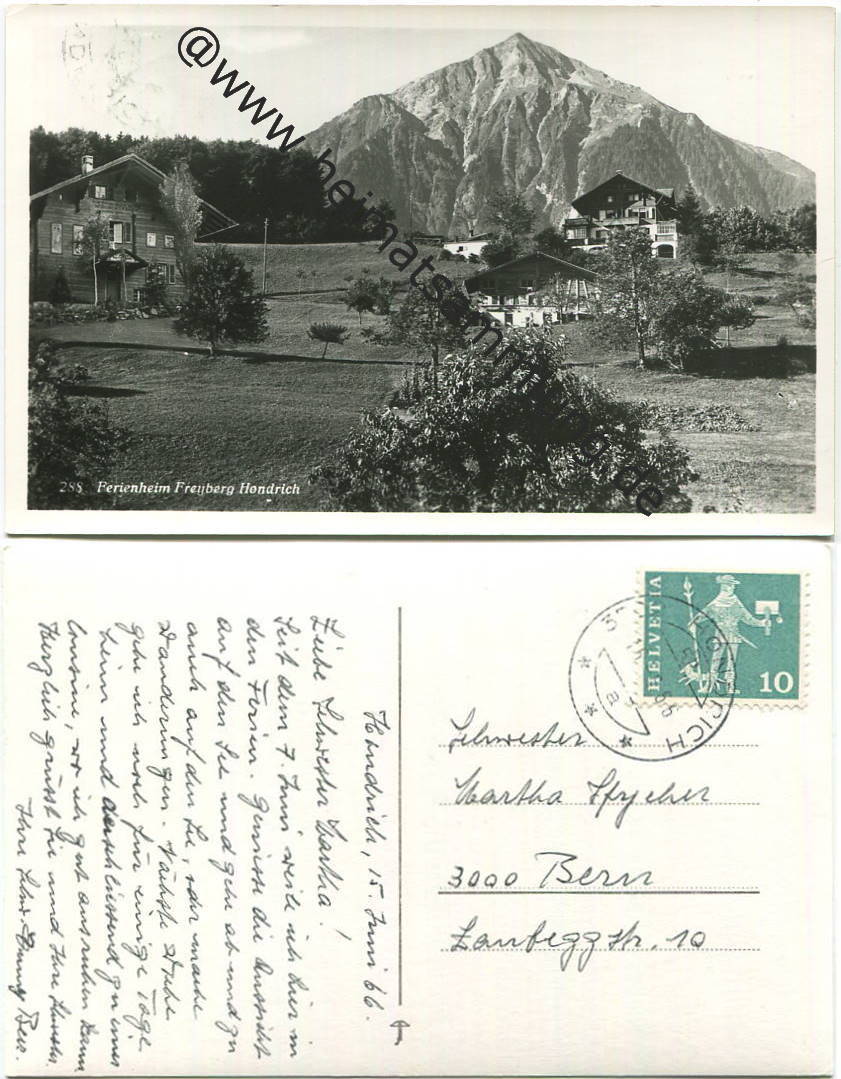 @www.heimatsammlung.de
288 Ferienheim Freyberg Hondrich
HELVETIA
10
HONDRICH
Hondrich, 15. Juni 66.
Liebe Schwester Martha!
Seit dem 7. Juni weile ich hier in
den Ferien. Geniesse die Aussicht
auf den See und gehe ab und zu
auch auf den See, oder mache
Wanderungen. Nächste Woche
gehe ich noch für einige Tage
heim und anschliessend zu einer
Cousine, wo ich gut ausruhen kann
Herzlich grüsst Sie und Ihre
Ihre Schw.
Schwester
Martha Spycher
3000 Bern
10